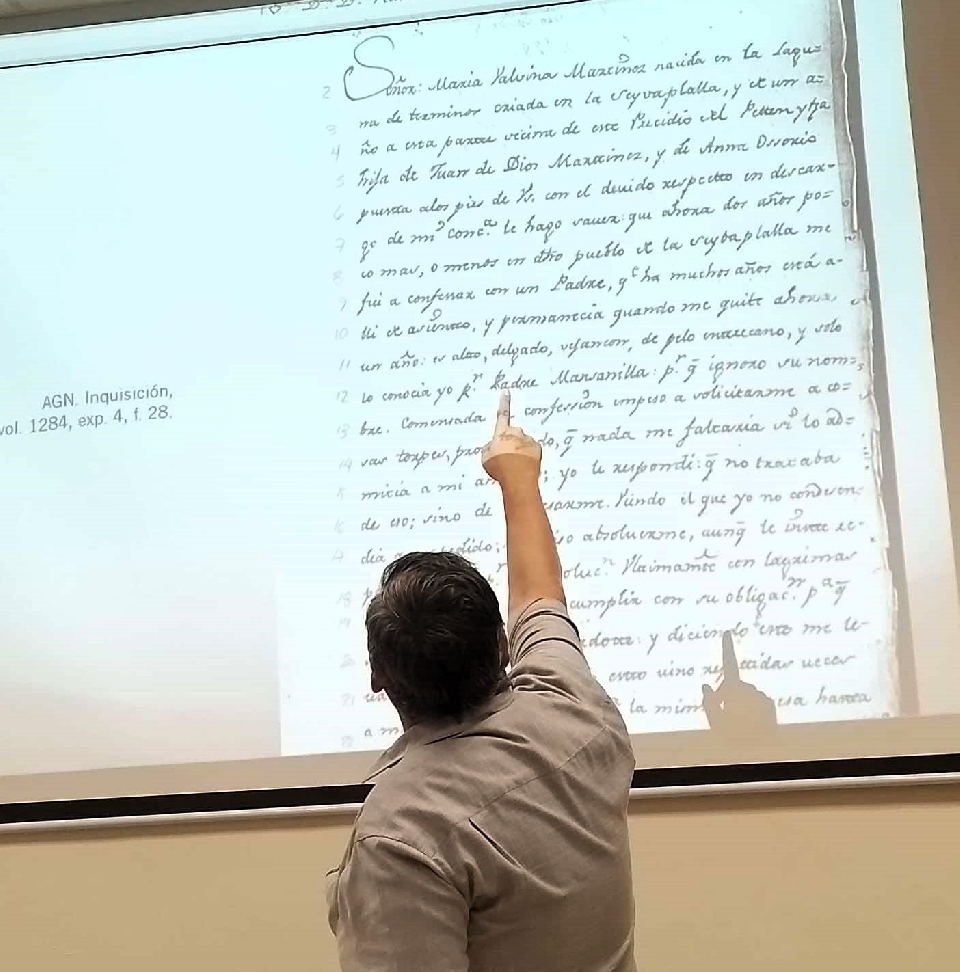 AGN. Inquisición,
vol. 1284, exp. 4, f. 28.
2 Señor: Maria Valvina Marcinez nacida en la Lagu=
3 na de terminos criada en la seyvaplalla, y de un a=
4 ño a esta parte vecina de este Precidio del Petten y ha
5 hija de Juan de Dios Martinez, y de Anna Ossorio
6 puesta alos pies de Vs. con el devido respecto en descar=
7 go de mi conc.a le hago saver: que ahora dos años po=
8 co mas, o menos en dho pueblo de la seybaplalla me
9 fui a confesar con un Padre, q.e ha muchos años está a-
10 lli de asiento, y permanecia quando me quite ahora
11 un año: es alto, delgado, vejancon, de pelo entrecano, y solo
12 lo conocia yo p.r Padre Mansanilla: p.r q̄ ignoro su nom=
13 bre. Comensada confession empeso a solicitarme a co=
14 sas torpes, do, q̄ nada me faltaria si lo ad=
mitia a mi ; yo le respondi: q̄ no trataba
de eso; sino de sarme. Viendo el que yo no condesen=
dia a so absolverme, aunq̄ le
18 oluc.n Ultimam.te con lagrimas
cumplir con su obligac.n p.a q̄
20 y diciendo esto me le-
21 esto vino repetidas veces
a m la mism esa hasta